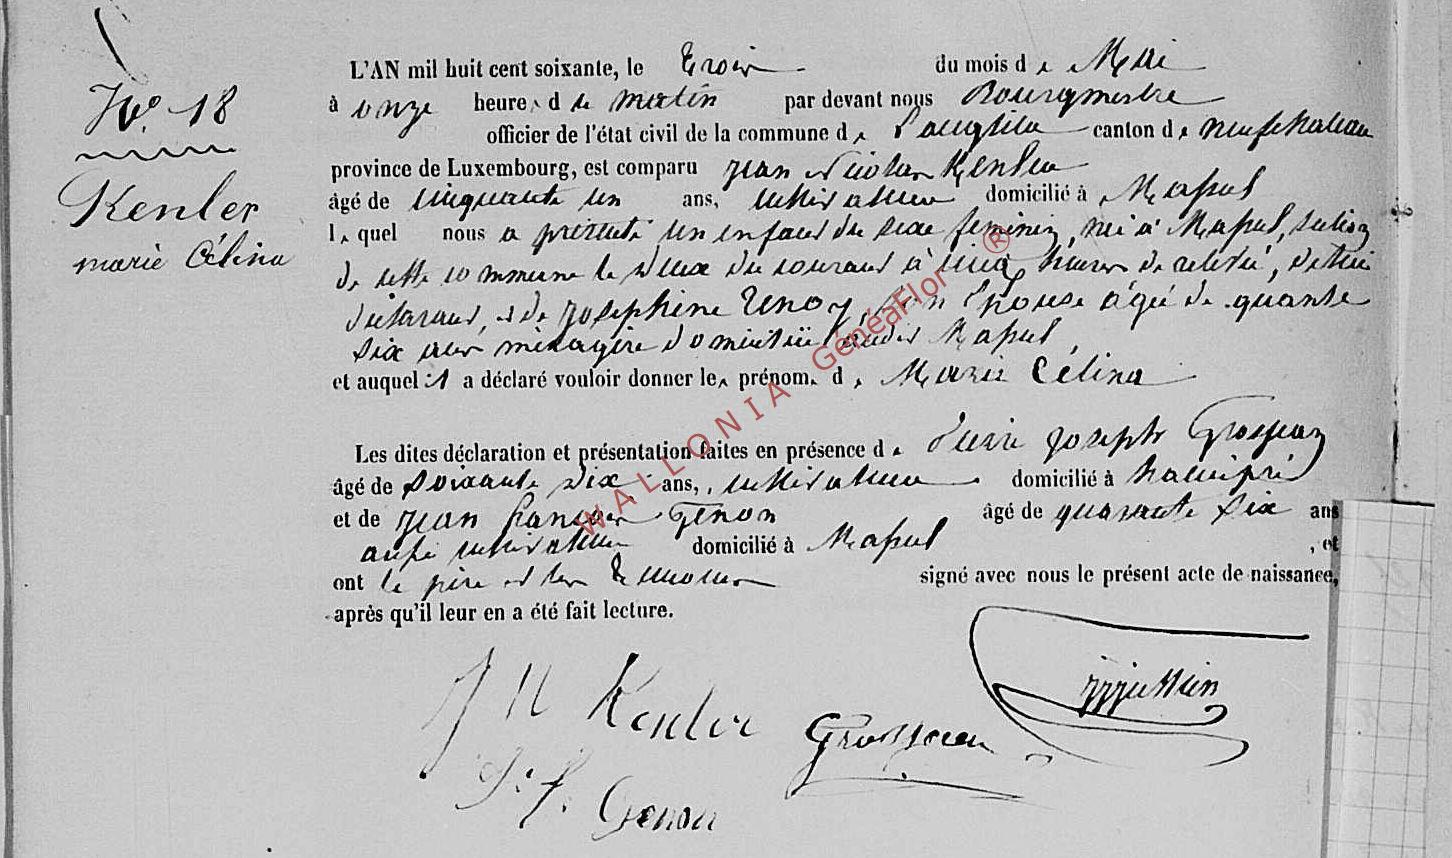 N.º 18
Kenler
marie Célina
L'AN mil huit cent soixante, le trois du mois de Mai
à onze heures du matin par devant nous Bourgmestre
officier de l'état civil de la commune de Longlier canton de neufchateau
province de Luxembourg, est comparu Jean Nicolas Kenler
âgé de cinquante un ans, cultivateur domicilié à Massul
lequel nous a présenté un enfant du sexe feminin, née à Massul, section
de cette commune le deux du courant à cinq heures de relevée, de lui
déclarant, et de Josephine Genon, son épouse âgée de quarante
six ans ménagère domiciliée audit Massul
et auquel il a déclaré vouloir donner les prénoms de Marie Célina
Les dites déclaration et présentation faites en présence de Pierre Joseph Grosjean
âgé de soixante dix ans, cultivateur domicilié à hamipré
et de Jean françois Genon âgé de quarante six ans
aussi cultivateur domicilié à Massul , et
ont le père et les témoins signé avec nous le présent acte de naissance,
après qu'il leur en a été fait lecture.
J N Kenler
Grosjean
J. f. Genon
WALLONIA GénéaFlor ®